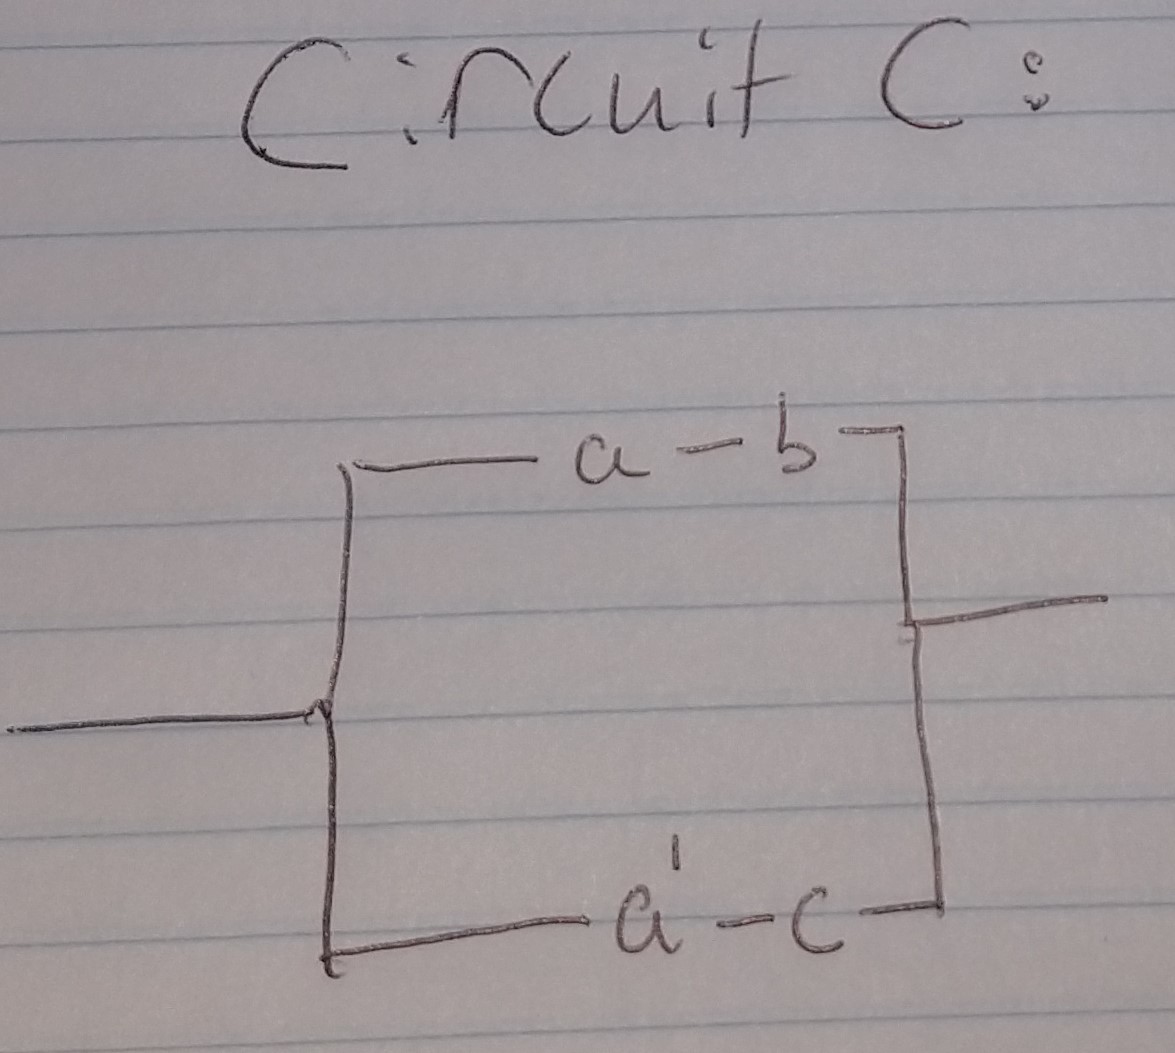 Circuit C:
a - b
a' - c